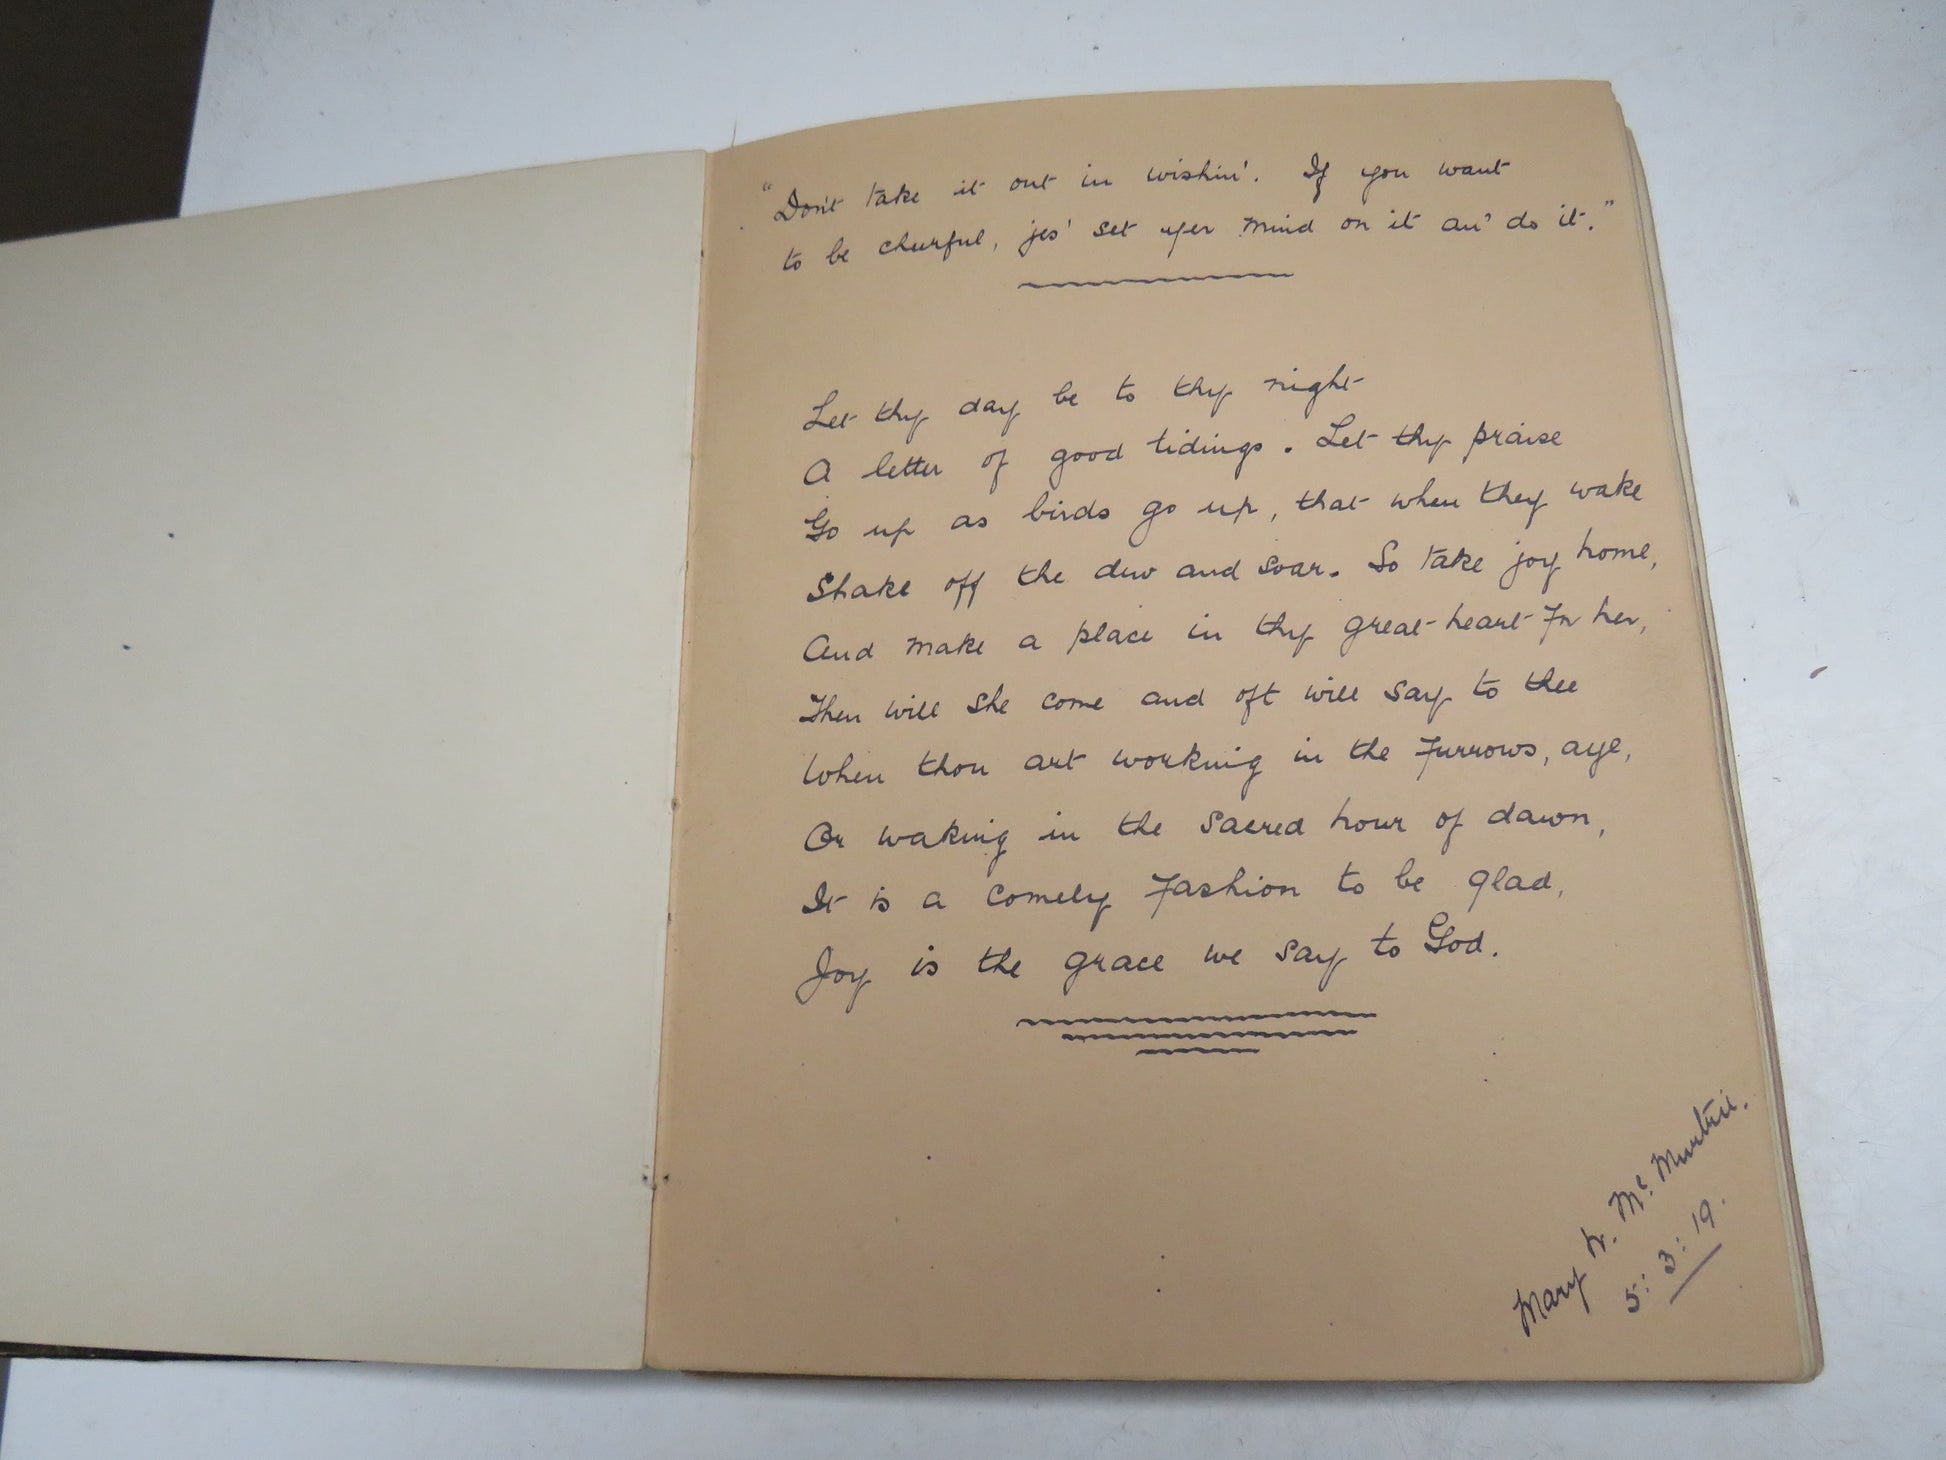 "Don't take it out in wishin'. If you want
to be cheerful, jes' set yer mind on it an' do it."
Let thy day be to thy night
A letter of good tidings. Let thy praise
Go up as birds go up, that when they wake
Shake off the dew and soar. So take joy home,
And make a place in thy great heart for her,
Then will she come and oft will say to thee
When thou art working in the furrows, aye,
Or waking in the sacred hour of dawn,
It is a comely fashion to be glad,
Joy is the grace we say to God.
Mary W. Mc. Murtrie.
5:3:19.